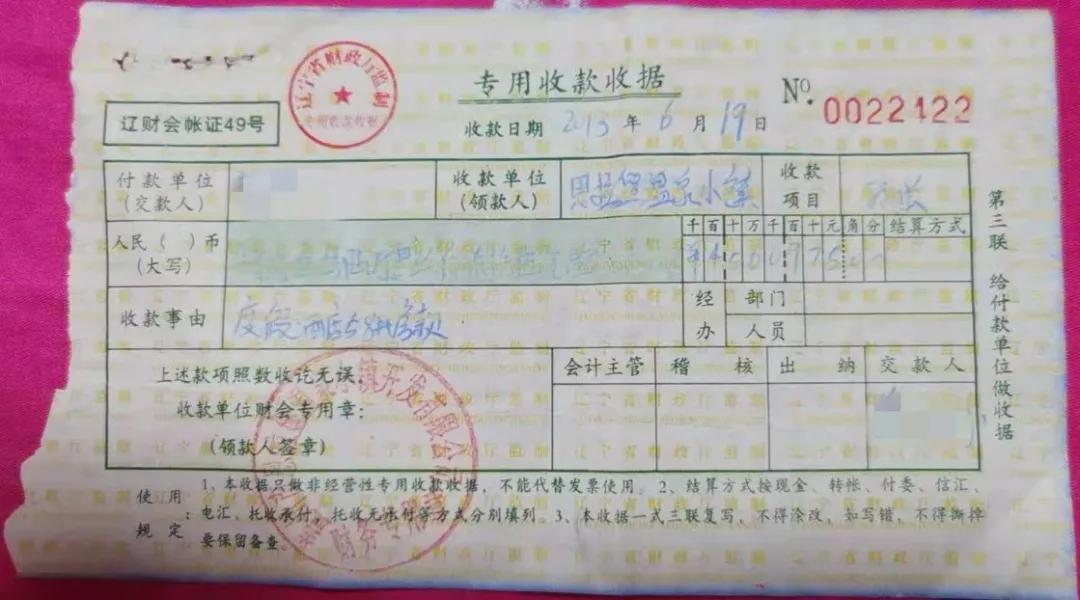 专用收款收据
辽宁省财政厅监制
专用收款收据
No. 0022122
辽财会帐证49号
收款日期 2013年6月19日
付款单位
(交款人)
收款单位
(领款人)
温泉小镇
收款
项目
人民( )币
(大写)
千百十万千百十元角分
结算方式
¥4500975
收款事由
度假酒店 房款
经办
部门
人员
上述款项照数收讫无误。
收款单位财会专用章:
(领款人签章)
会计主管
稽核
出纳
交款人
镇开发有限公司
财务专用
第三联 给付款单位做收据
使用规定:
1、本收据只做非经营性专用收款收据,不能代替发票使用。2、结算方式按现金、转帐、付委、信汇、
电汇、托收承付,托收无承付等方式分别填列。3、本收据一式三联复写,不得涂改,如写错,不得撕掉
要保留备查。